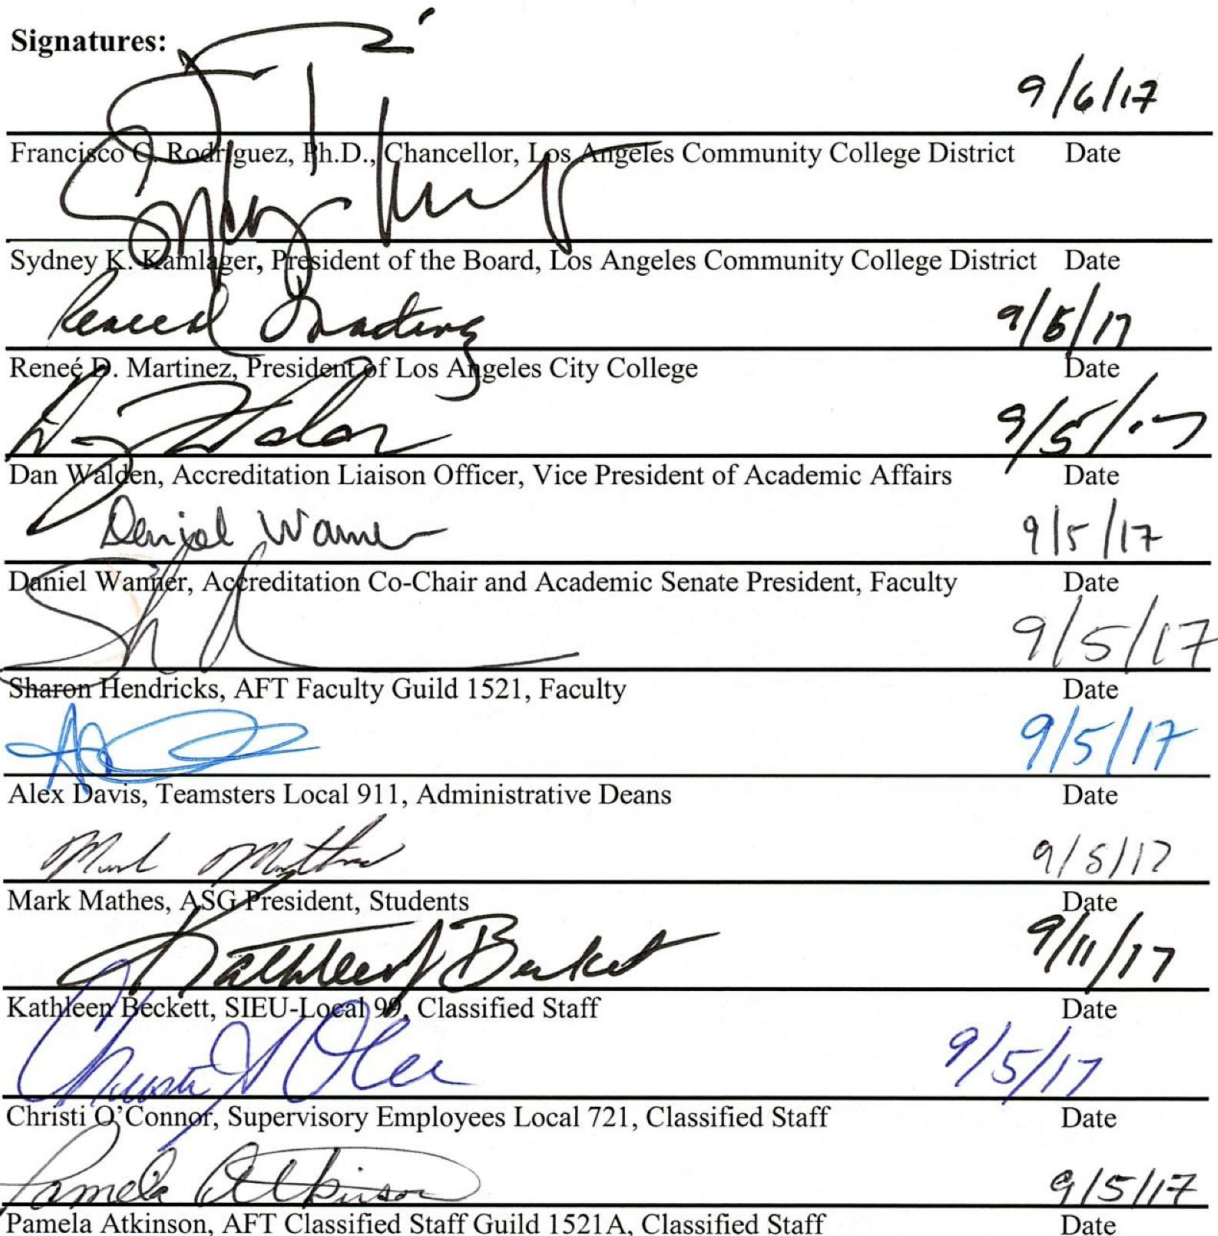 Signatures:
9/6/17
Francisco C. Rodriguez, Ph.D., Chancellor, Los Angeles Community College District Date
Sydney K. Kamlager, President of the Board, Los Angeles Community College District Date
9/5/17
Reneé D. Martinez, President of Los Angeles City College Date
9/5/17
Dan Walden, Accreditation Liaison Officer, Vice President of Academic Affairs Date
Daniel Wanner 9/5/17
Daniel Wanner, Accreditation Co-Chair and Academic Senate President, Faculty Date
9/5/17
Sharon Hendricks, AFT Faculty Guild 1521, Faculty Date
9/5/17
Alex Davis, Teamsters Local 911, Administrative Deans Date
9/5/17
Mark Mathes, ASG President, Students Date
Kathleen Beckett 9/11/17
Kathleen Beckett, SIEU-Local 99, Classified Staff Date
9/5/17
Christi O'Connor, Supervisory Employees Local 721, Classified Staff Date
Pamela Atkinson 9/5/17
Pamela Atkinson, AFT Classified Staff Guild 1521A, Classified Staff Date